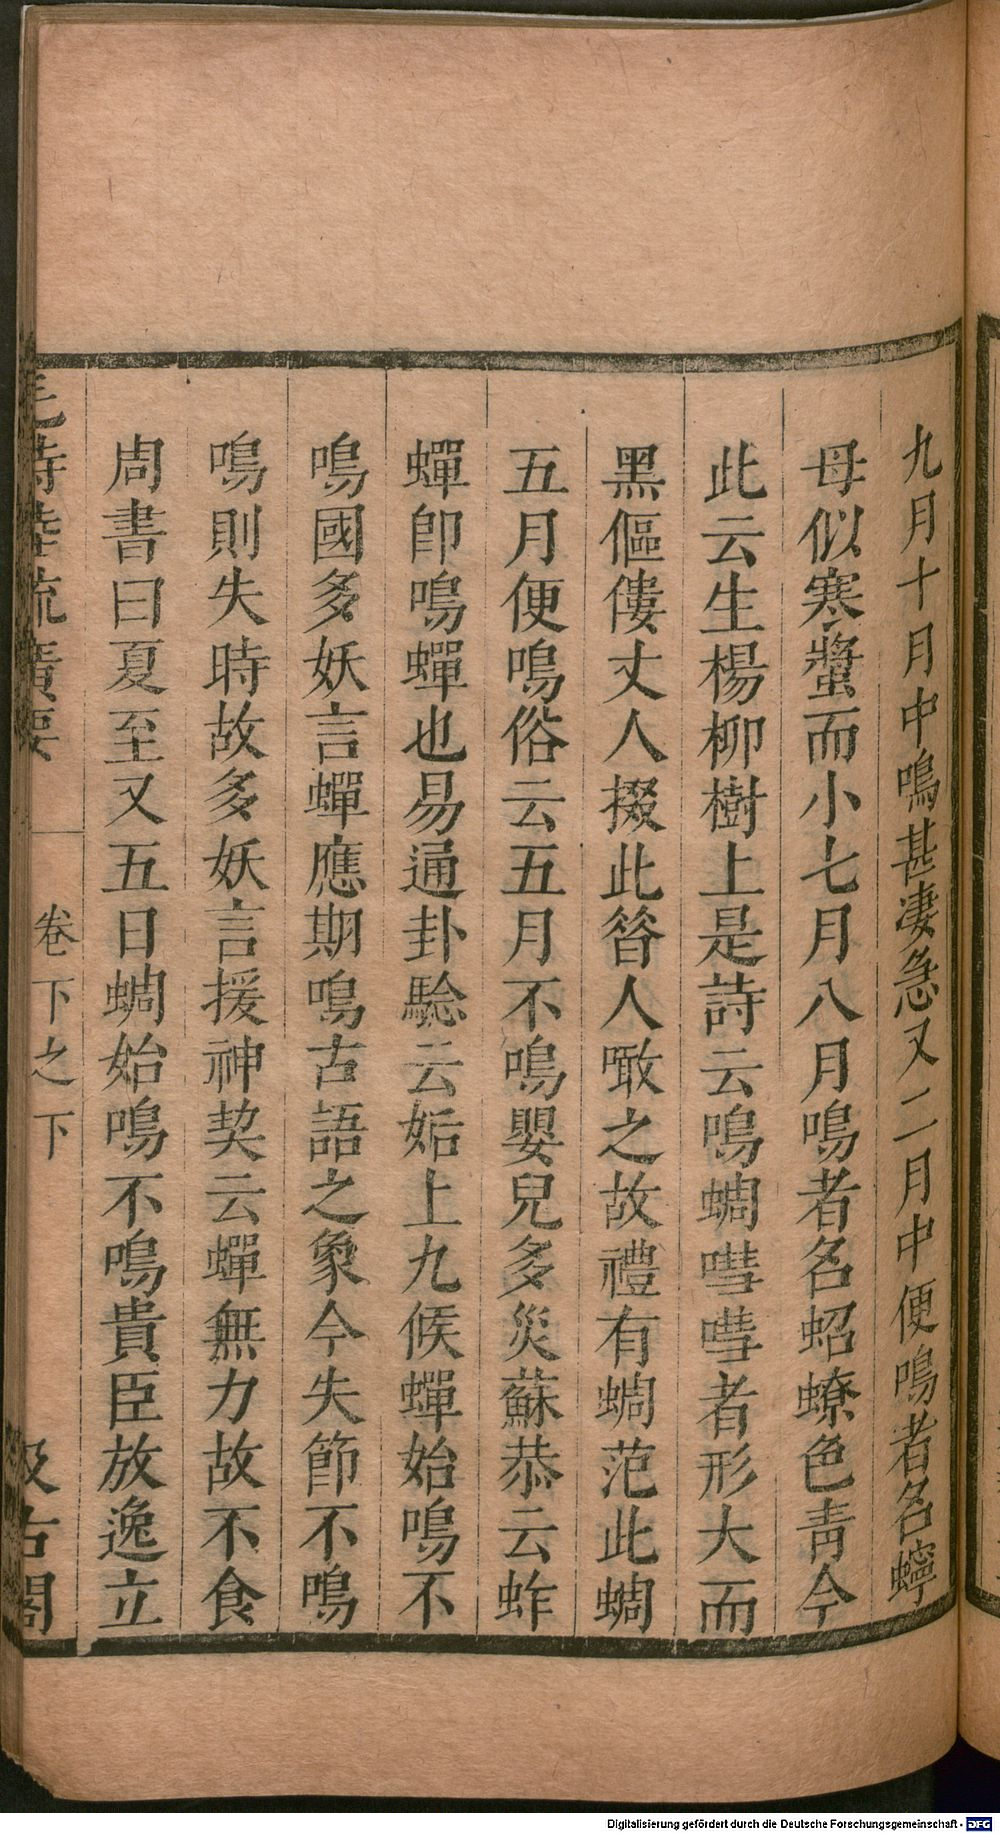 九月十月中鳴甚凄急又二月中便鳴者名蟀
母似寒螿而小七月八月鳴者名蛁蟟色靑今
此云生楊柳樹上是詩云鳴蜩嘒嘒者形大而
黑傴僂丈人掇此昝人噉之故禮有蜩范此蜩
五月便鳴俗云五月不鳴嬰兒多災蘇恭云蚱
蟬卽鳴蟬也易通卦驗云姤上九候蟬始鳴不
鳴國多妖言蟬應期鳴古語之象今失節不鳴
鳴則失時故多妖言援神契云蟬無力故不食
周書曰夏至又五日蜩始鳴不鳴貴臣放逸立
毛詩陸疏廣要
卷下之下
汲古閣
Digitalisierung gefördert durch die Deutsche Forschungsgemeinschaft - DFG